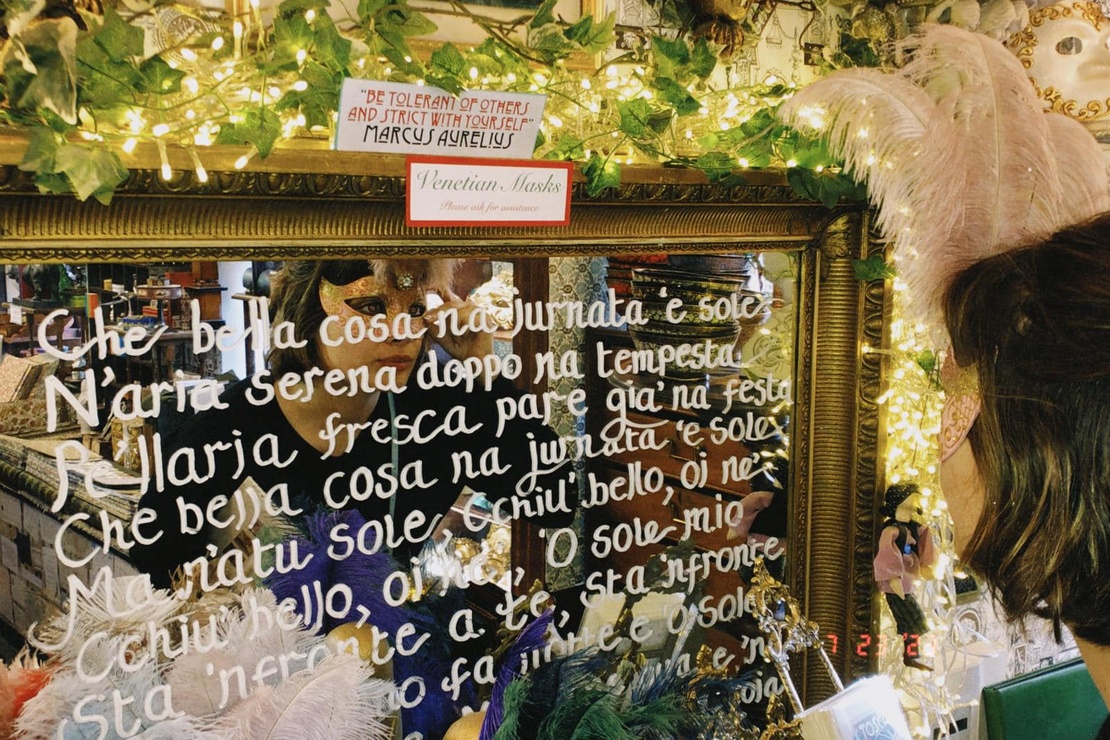 "BE TOLERANT OF OTHERS
AND STRICT WITH YOURSELF"
MARCUS AURELIUS
Venetian Masks
Please ask for assistance
Che bella cosa na jurnata 'e sole
N'aria serena doppo na tempesta
Pe'llaria fresca pare gia' na festa
Che bella cosa na jurnata 'e sole
Ma n'atu sole, cchiu' bello, oi ne'
'O sole mio
Sta 'nfronte a te,
Sta 'nfronte
Cchiu' bello, oi ne',
'O sole
Sta 'nfronte a te
fa
7 23